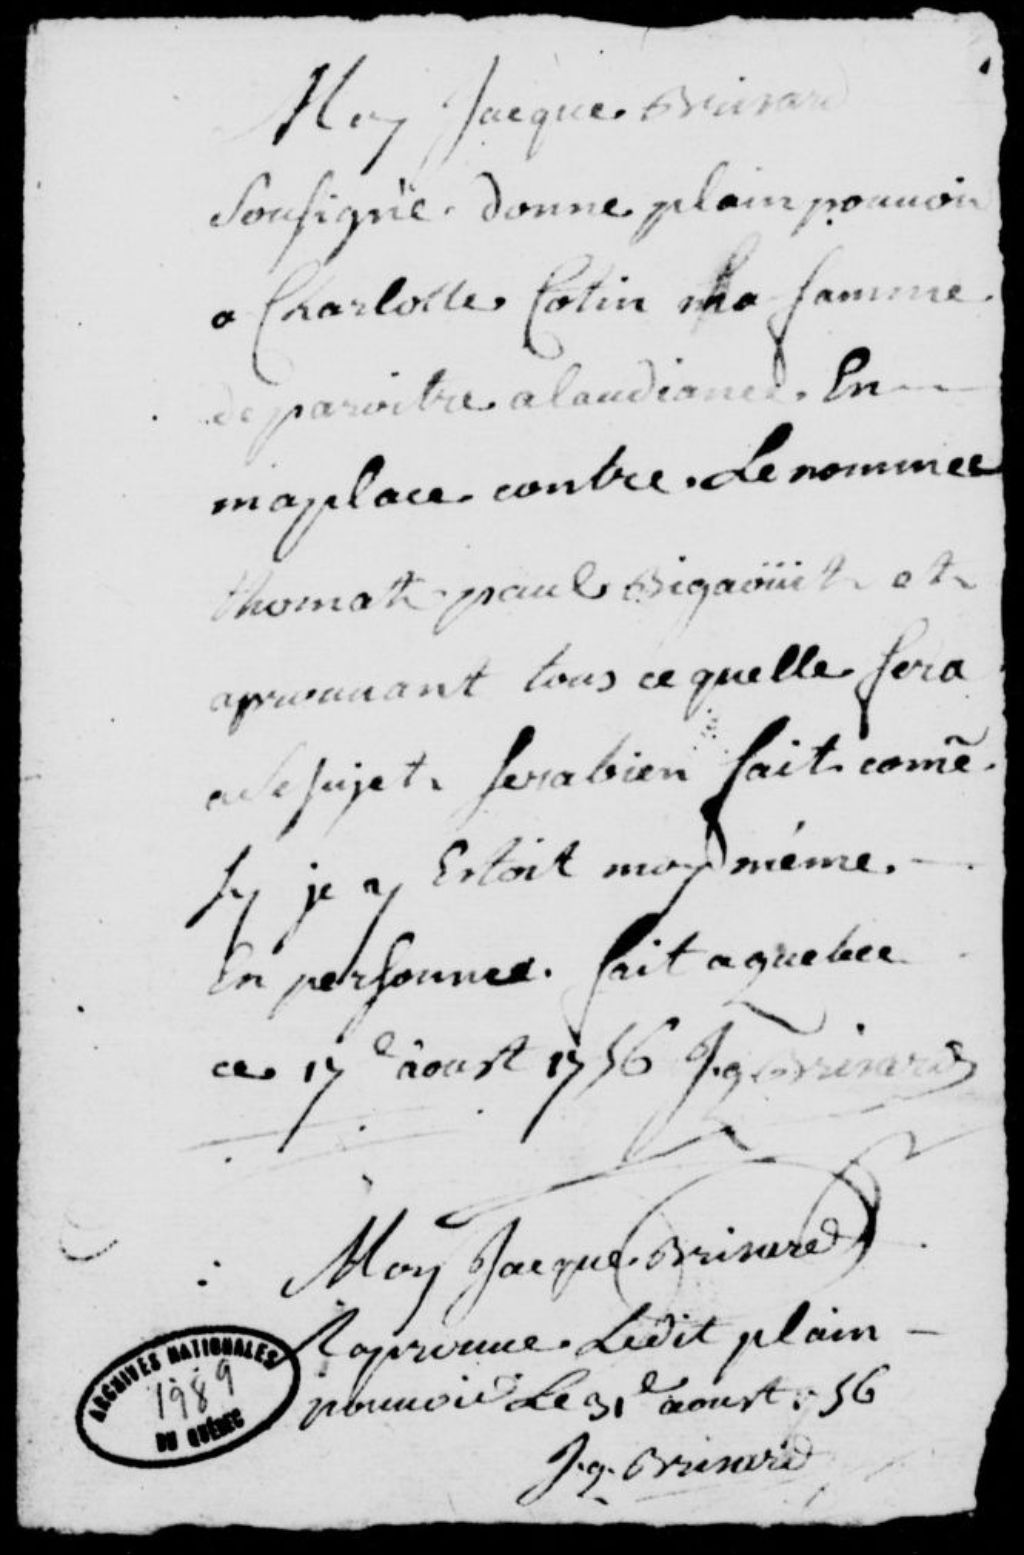 Moy Jacque Brinard
Sousigné donne plain pouuoir
a Charlotte Cotin ma famme
de paroitre a laudiance En
ma place contre Le nommee
thomat paul Bigaöüit et
aprouuant tous ce quelle fera
a se sujet sera bien fait comẽ
sy je y Estoit moy méme
En personnes fait a quebec
ce 17e aoust 1756 J.q Brinard
Moy Jacque Brinard
Raprouue Ledit plain
pouuoir Le 31e aoust 56
J.q. Brinard
ARCHIVES NATIONALES
1989
DU QUÉBEC